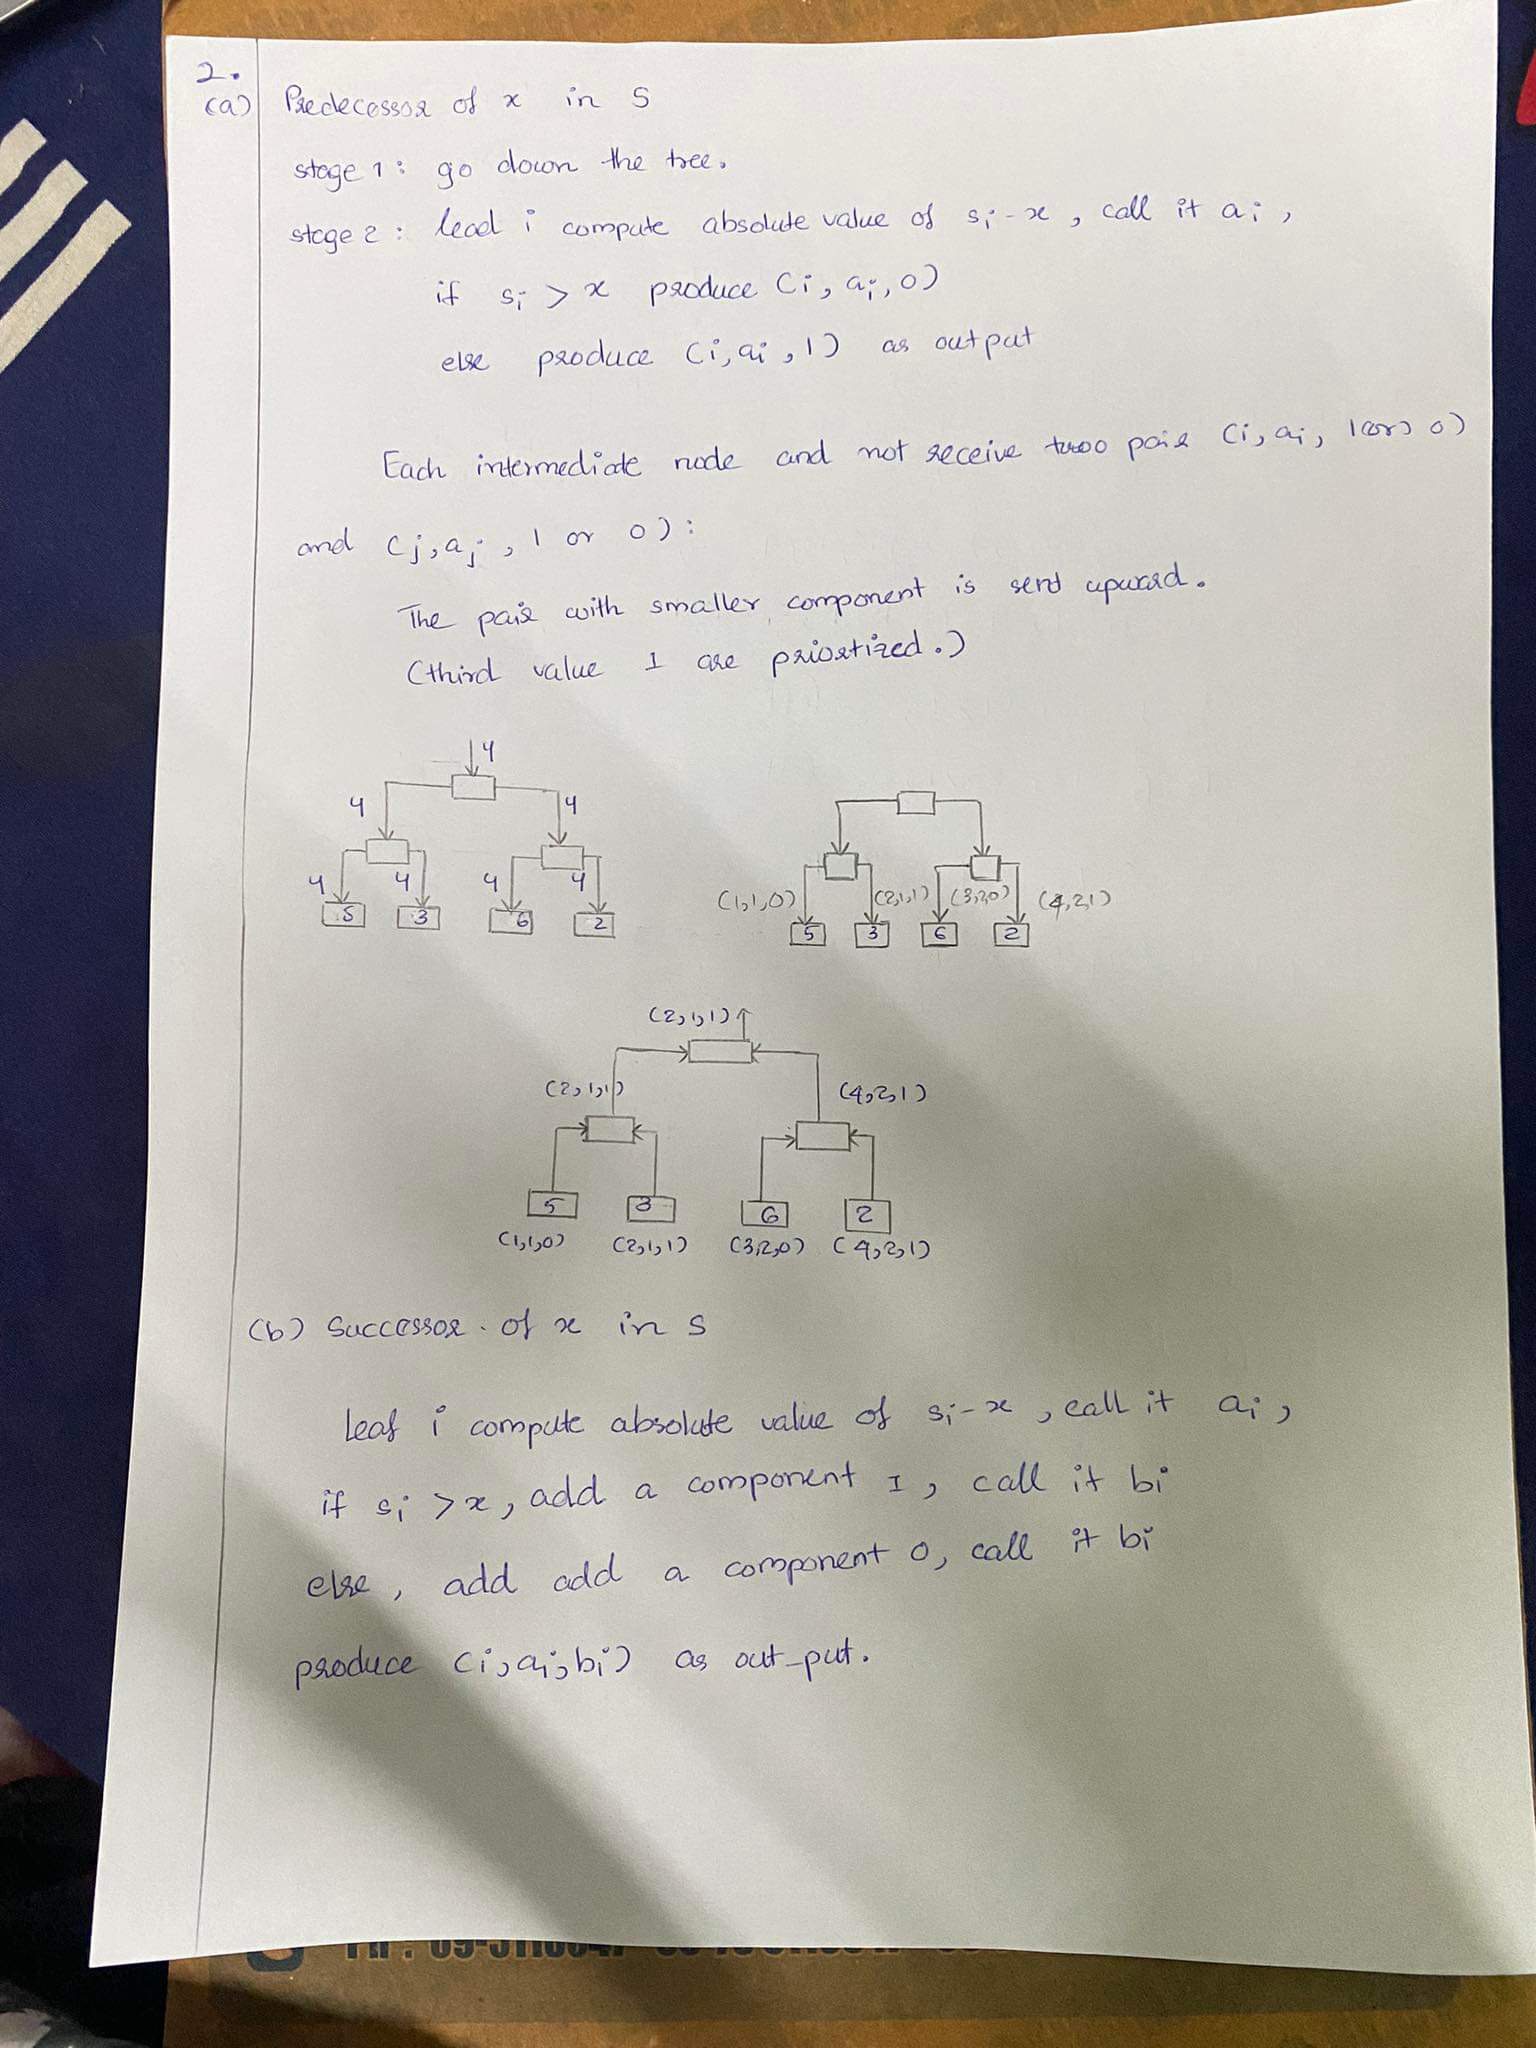 2.
(a) Predecessor of x in S
stage 1: go down the tree.
stage 2: lead i compute absolute value of si - x, call it ai,
if si > x produce (i, ai, 0)
else produce (i, ai, 1) as output
Each intermediate node and not receive two pair (i, ai, 1 (or) 0)
and (j, aj, 1 or 0):
The pair with smaller component is send upward.
(third value 1 are priortized.)
4
4 4
4 4 4 4
5 3 6 2
(1,1,0) (2,1,1) (3,2,0) (4,2,1)
5 3 6 2
(2,1,1)
(2,1,1) (4,2,1)
5 3 6 2
(1,1,0) (2,1,1) (3,2,0) (4,2,1)
(b) Successor. of x in S
leaf i compute absolute value of si - x, call it ai,
if si > x, add a component 1, call it bi
else, add add a component 0, call it bi
produce (i, ai, bi) as out-put.